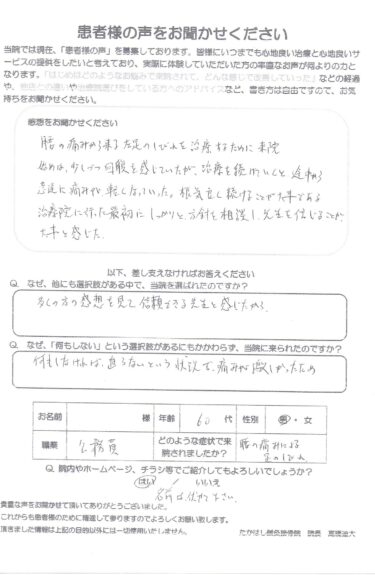 患者様の声をお聞かせください
当院では現在、「患者様の声」を募集しております。皆様にいつまでも心地良い治療と心地良いサ
ービスの提供をしたいと考えており、実際に体験していただいた方の率直なお声が何よりの力と
なります。「はじめはどのようなお悩みで来院されて、どんな感じで改善していった」などの経過
や、他店との違いや治療院選びをしている方へのアドバイスなど、書き方は自由ですので、お気
持ちをお聞かせください。
感想をお聞かせください
腰の痛みから来る左足のしびれを治療するために来院
始めは、少しづつ回復を感じていたが、治療を続けていくと
急速に痛みが軽くなっていった。根気良く続けることが大事である
治療院に行った最初にしっかりと方針を相談し先生を信じることが
大事と感じた。
以下、差し支えなければお答えください
Q. なぜ、他にも選択肢がある中で、当院を選ばれたのですか?
多くの方の感想を見て信頼できる先生と感じたから
Q. なぜ、「何もしない」という選択肢があるにもかかわらず、当院に来られたのですか?
何もしなければ、直らないという状況で、痛みが激しかったため
お名前 様 年齢 60 代 性別 男・女
職業 公務員 どのような症状で来院されましたか? 腰の痛みによる足のしびれ
Q. 院内やホームページ、チラシ等でご紹介してもよろしいでしょうか?
はい / いいえ
名前は伏せて下さい。
貴重な声をお聞かせて頂いてありがとうございました。
これからも患者様のために精進して参りますのでよろしくお願い致します。
頂きました情報は上記の目的以外には一切使用いたしません。 たかはし鍼灸接骨院 院長 高橋